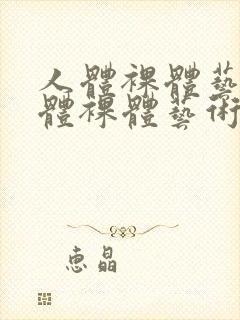 人體裸體藝
體裸體藝術
惠晶